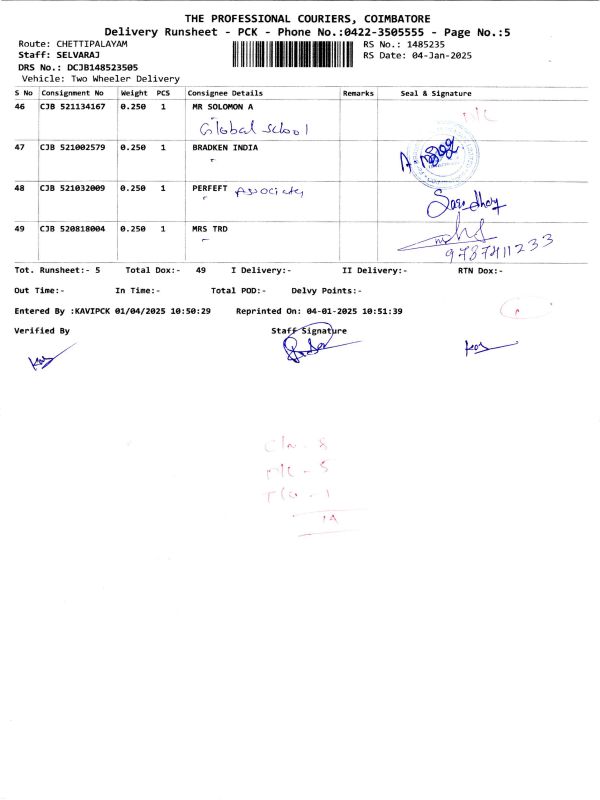 THE PROFESSIONAL COURIERS, COIMBATORE
Delivery Runsheet - PCK - Phone No.:0422-3505555 - Page No.:5
Route: CHETTIPALAYAM RS No.: 1485235
Staff: SELVARAJ RS Date: 04-Jan-2025
DRS No.: DCJB148523505
Vehicle: Two Wheeler Delivery
S No Consignment No Weight PCS Consignee Details Remarks Seal & Signature
46 CJB 521134167 0.250 1 MR SOLOMON A
Global school
47 CJB 521002579 0.250 1 BRADKEN INDIA
48 CJB 521032009 0.250 1 PERFEFT Associates
49 CJB 520818004 0.250 1 MRS TRD
9787411233
Tot. Runsheet:- 5 Total Dox:- 49 I Delivery:- II Delivery:- RTN Dox:-
Out Time:- In Time:- Total POD:- Delvy Points:-
Entered By :KAVIPCK 01/04/2025 10:50:29 Reprinted On: 04-01-2025 10:51:39
Verified By Staff Signature